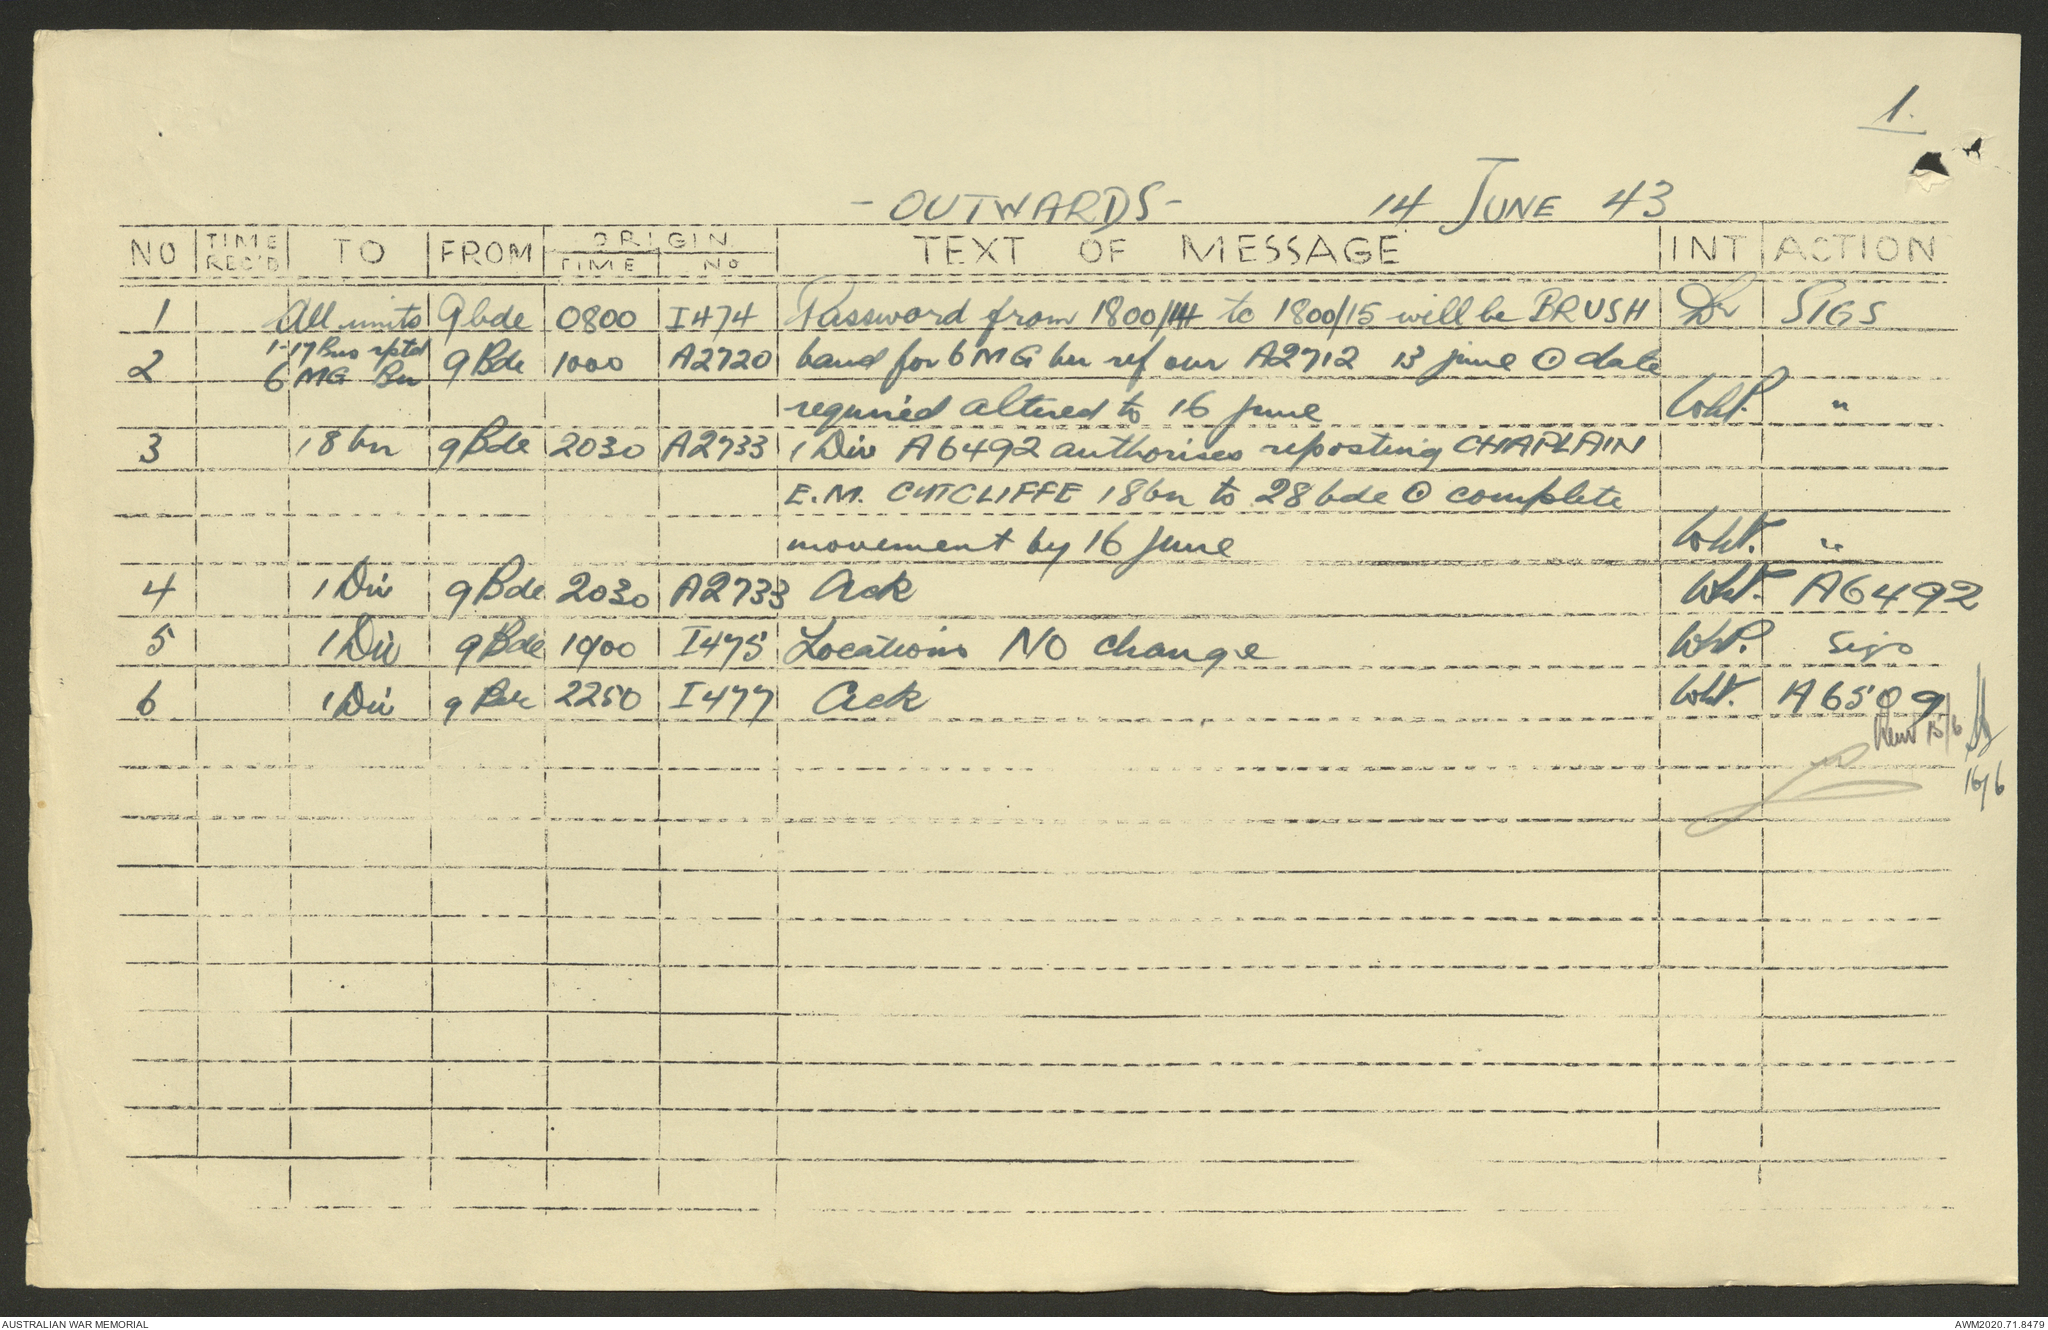 1.
- OUTWARDS - 14 JUNE 43
NO TIME REC'D TO FROM ORIGIN TIME NO TEXT OF MESSAGE INT ACTION
1 All units 9 bde 0800 I474 Password from 1800/14 to 1800/15 will be BRUSH SIGS
2 1-17 Bns rptd 6 MG Bn 9 Bde 1000 A2720 band for 6 MG bn ref our A2712 13 june ⊙ date
required altered to 16 June "
3 18 bn 9 Bde 2030 A2733 1 Div A6492 authorises reposting CHAPLAIN
E.M. CUTCLIFFE 18 bn to 28 bde ⊙ complete
movement by 16 June "
4 1 Div 9 Bde 2030 A2733 Ack A6492
5 1 Div 9 Bde 1900 I475 Locations NO change Sigs
6 1 Div 9 Bde 2250 I477 Ack A6509
15/6
16/6
AUSTRALIAN WAR MEMORIAL AWM2020.71.8479